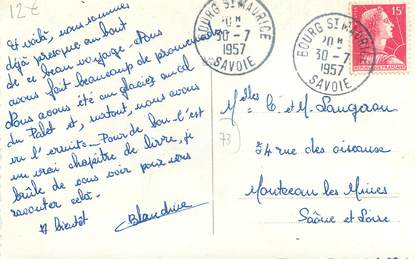 12€
Et voilà, nous sommes
déjà presque au bout
de ce beau voyage. Nous
avons fait beaucoup de promenades.
Nous avons été au glacier au col
du Palet et, surtout, nous avons
vu l'ermite - Pour de bon - C'est
un vrai chapitre de livre, je
brûle de vous voir pour vous
raconter cela.
A bientôt
Blandine
BOURG ST MAURICE
30-7
1957
SAVOIE
BOURG ST MAURICE
30-7
1957
SAVOIE
15F
Melles C. et M. Laugaron
73
54 rue des oiseaux
Montceau les Mines
Saône et Loire